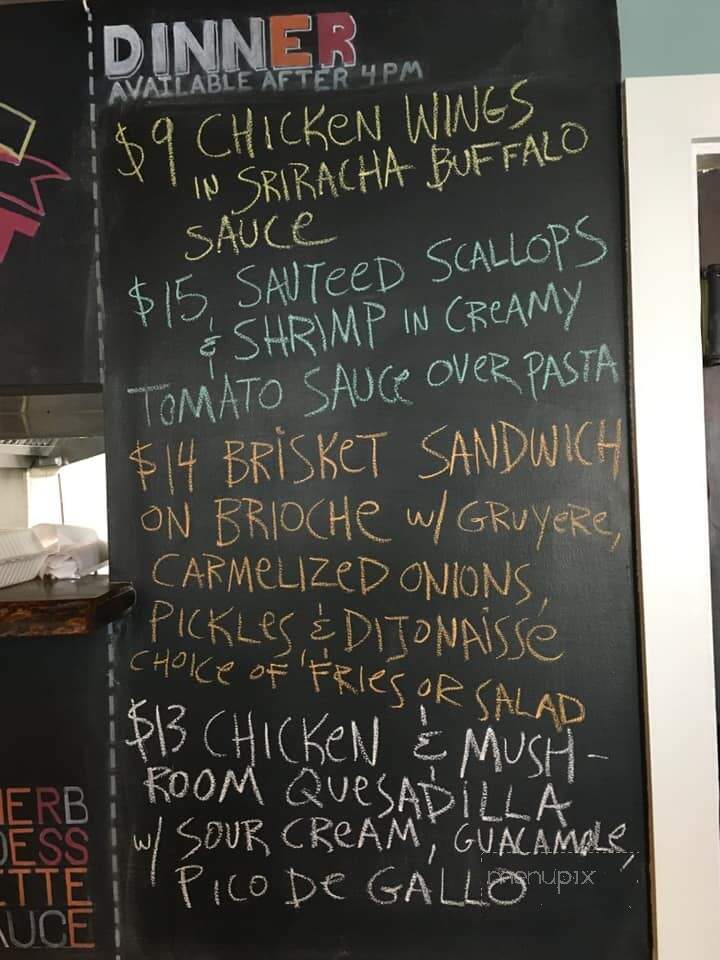 DINNER
AVAILABLE AFTER 4 PM
$9 CHICKEN WINGS
IN SRIRACHA BUFFALO
SAUCE
$15, SAUTEED SCALLOPS
& SHRIMP IN CREAMY
TOMATO SAUCE OVER PASTA
$14 BRISKET SANDWICH
ON BRIOCHE w/ GRUYERE,
CARMELIZED ONIONS,
PICKLES & DIJONAISSE
CHOICE OF FRIES OR SALAD
$13 CHICKEN & MUSH-
ROOM QUESADILLA
w/ SOUR CREAM, GUACAMOLE,
PICO DE GALLO
menupix
ERB
ESS
ETTE
AUCE